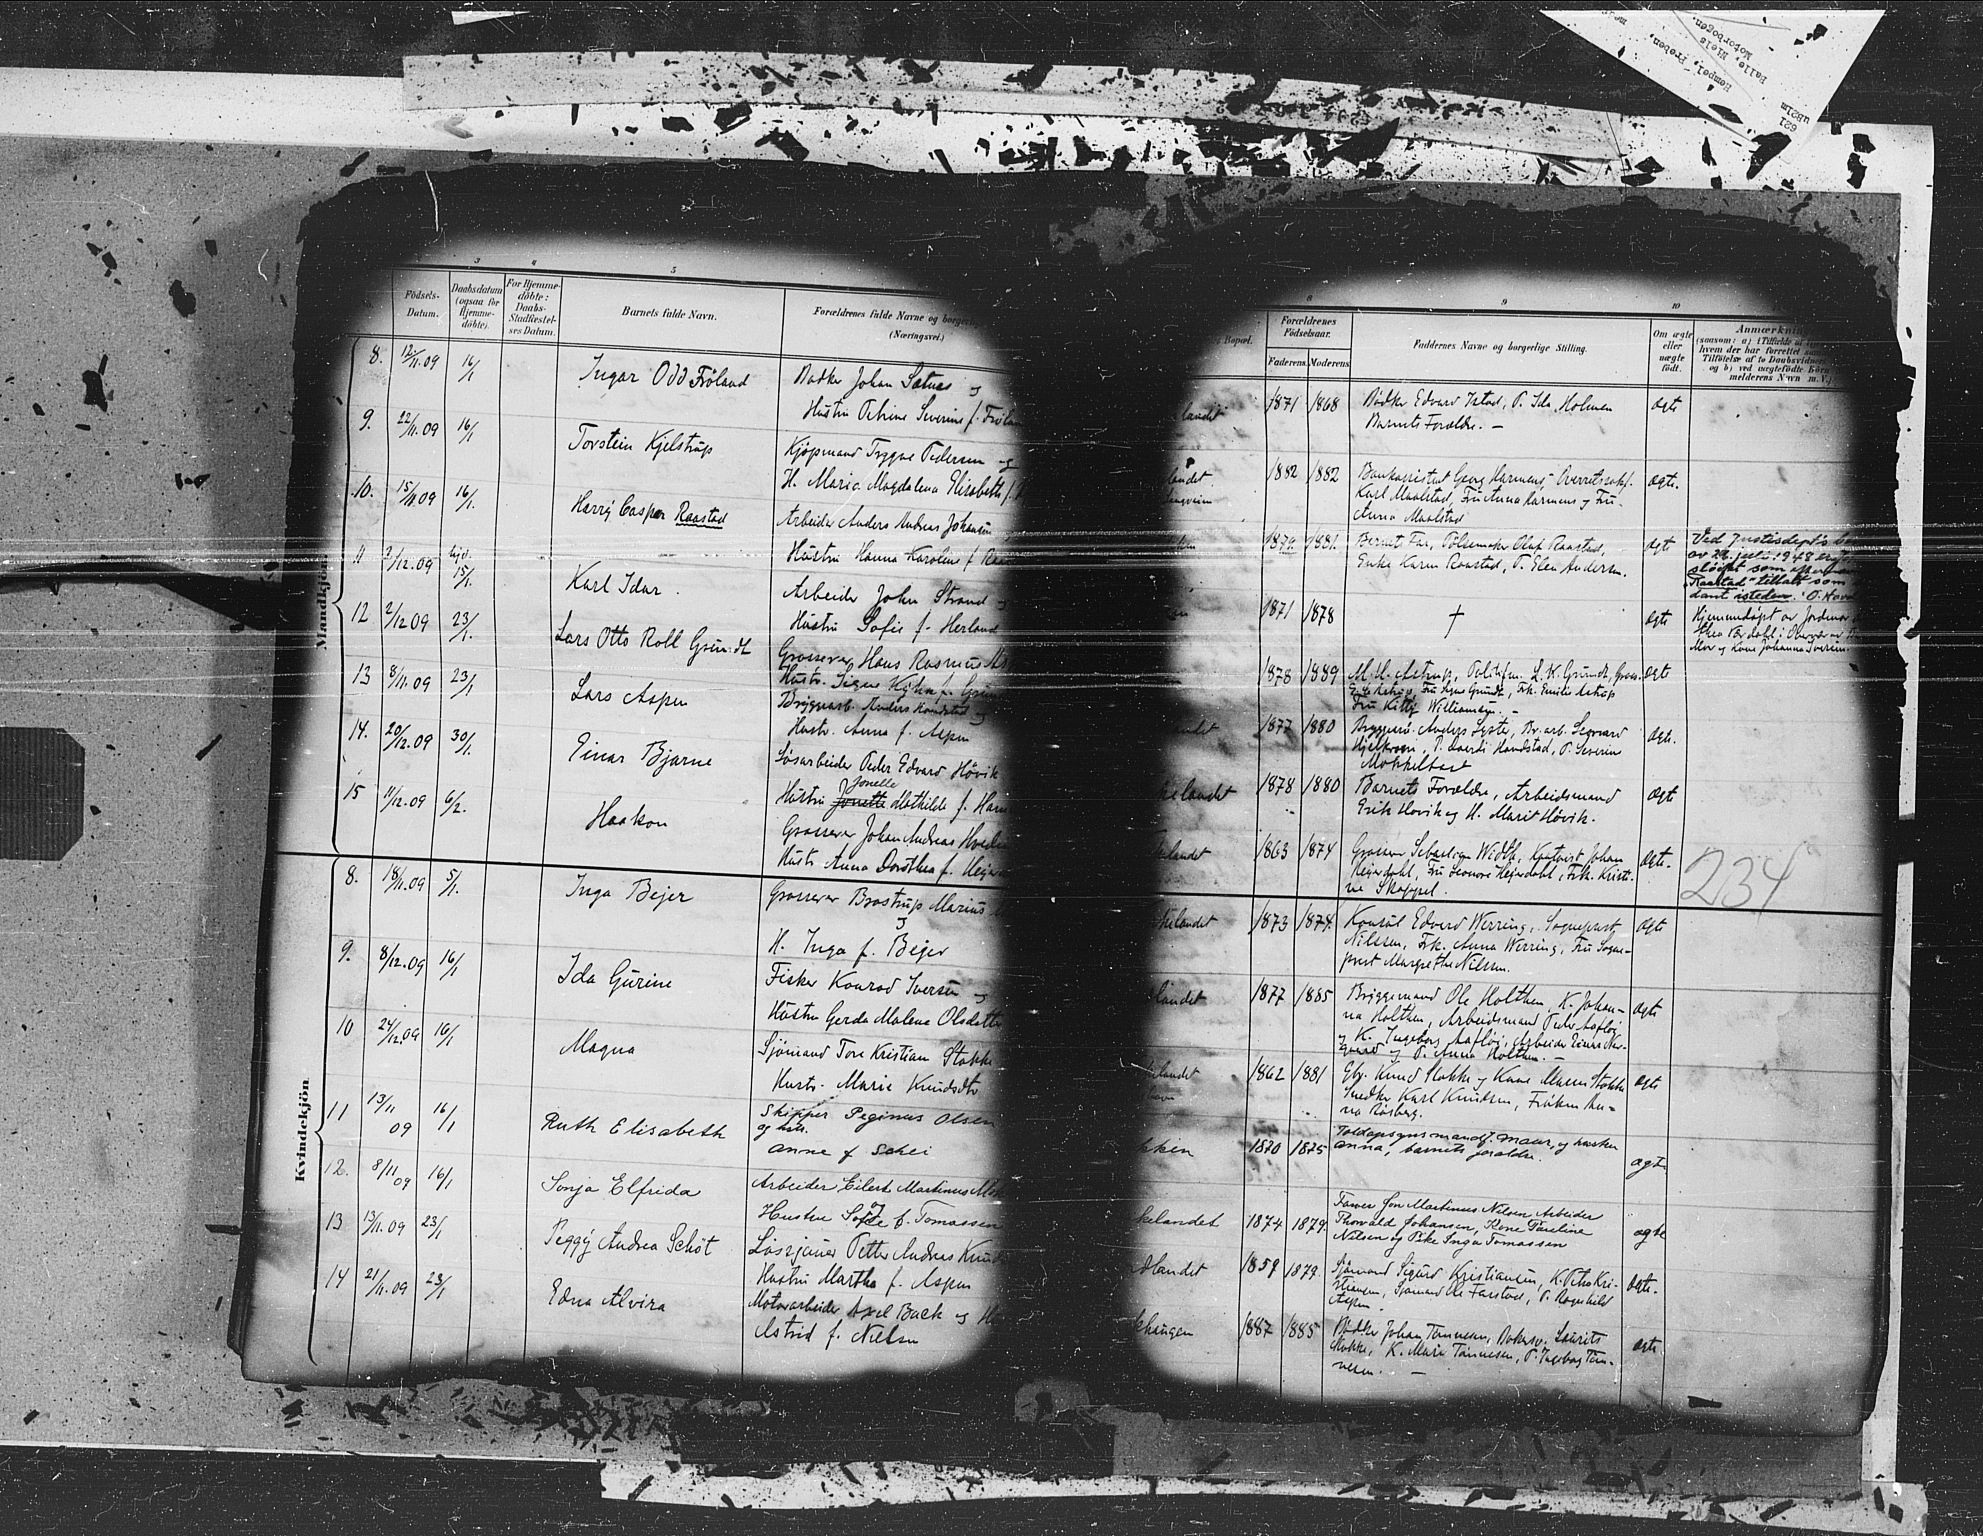 Hempel, Preben.
Palle, Niels
Motorbogen.
621
3
4
5
Födsels-
Datum.
Daabsdatum
(ogsaa for
Hjemme-
döbte).
For Hjemme-
döbte:
Daabs-
Stadfæstel-
ses Datum.
Barnets fulde Navn.
Forældrenes fulde Navne og borgerlig
(Næringsvei.)
Mandkjön
8. 12/11.09 16/1 Ingar Odd Fröland
Bödker Johan Sætnes og
Hustru Petrine Severine f. Fröla
9. 22/11.09 16/1 Torstein Kjelstrup
Kjöpmand Trygve Pedersen og
H. Marie Magdalena Elisabeth f.
10. 15/11 09 16/1. Harry Casper Raastad
Arbeider Anders Andreas Johansen
Hustru Hanna Karoline f Raas
11 /12.09 hjd. 15/1. Karl Idar.
Arbeider John Strand og
Hustru Sofie f. Herland
12 2/12 09 23/1. Lars Otto Roll Grundt
Grosserer Hans Rasmus Ast
Hustr. Signe Kitha f. Grun
13 8/11.09 23/1 Lars Aspen
Bryggearb. Anders Handstad og
Hustr. Anna f. Aspen
14. 20/12.09 30/1. Einar Bjarne
Løsarbeider Peder Edvard Hövik
Jonelle
Hustru Jonette Mathilde f. Han
15 11/12.09 6/2. Haakon
Grosserer Johan Andreas
Hustr Anna Dorothea f. Heije
Kvindekjön
8. 18/11.09 5/1. Inga Bejer
Grosserer Brostrup Marius
og
H. Inga f. Bejer
9. 8/12.09 16/1 Ida Gurine
Fisker Konrad Iversen og
Hustru Gerda Malene Olsdatte
10 24/12.09 16/1 Magna
Sjömand Tore Kristian Stokke
Hustr. Marie Knudsdtr
11 13/11 09 16/1 Ruth Elisabeth
Skipper Peginus Olsen
og hstr.
Anne f Schei
12. 8/11 09 16/1 Sonja Elfrida
Arbeider Eilert Martinus
Hustru Sofie f. Tomassen
13 13/11.09 23/1 Peggy Andrea Schöt
Løssjauer Petter Andreas Knud
Hustru Martha f. Aspen
14 21/11.09 23/1 Edna Alvira
Motorarbeider Axel Back og H
Astrid f. Nielsen
8
9
10
Bopæl.
Forældrenes
Födselsaar.
Faderens. Moderens.
Faddernes Navne og borgerlige Stilling.
Om ægte
eller
uægte
födt.
Anmærkning
(saasom: a) i Tilfælde af
hvem der har forrettet
Tilföielse af to Daabsvidner
og b) ved uægtefödte Börn
melderens Navn m. V.)
landet 1871 1868 Bödker Edvard Istad, P. Ida Holmen
Barnets Forældre. — ægte
landet 1882 1882 Bankassistent Georg Harmens, Overretssakf.
Karl Maalstad, Fru Anna Harmens og Fru
Anna Maalstad ægte.
1879. 1881. Barnets Far, Pölsemaker Olaf Raastad,
Enke Karen Raastad, P. Elen Andersen. ægte
Ved Justisdept's
av 24. juli 1948 er
slöifet som
"Raastad" tillatt som
navn isteden.
1871 1878 † ægte
Hjemmedöpt av Jordmor
Mor og Kone Johanna Iversen.
1878 1889 M. H. Astrup, Politifm. L. K. Grundt, Gross.
Astrup, Fru Signe Grundt, Frk. Emilie Astrup
Fru Kitty Williamsen. — ægte
landet 1877 1880 Bryggearb. Anders Lyste, Br. arb. Leonard
Hjelkrem, P. Handstad, P. Severin
Mokkelbost ægte.
kelandet 1878 1880 Barnets Forældre, Arbeidsmand
Erik Hövik og H. Marit Hövik. ægte
landet 1863 1874 Grosserer Sebastian Width, Johan
Heijerdahl, Fru Leonore Heijerdahl, Frk. Kristi-
ne Skappel. ægte.
234
kelandet 1873 1874. Konsul Edvard Werring, Sogneprest
Nilssen, Frk. Anna Werring, Fru Sogne-
prest Margrethe Nilssen. ægte
landet 1877 1885 Bryggemand Ole Holthen, K. Johan-
na Holthen, Arbeidsmand Peder Aaflöy
og K. Ingeborg Aaflöy, Arbeider Einar Ner-
gaard og P. Anna Holthen. — ægte
landet 1862 1881 Gbg. Knud Stokke og Kone Maren Stokke
Snedker Karl Knudsen, Fröken An-
na Rösberg. ægte
kken 1870 1875 Toldopsynsmand f. Maur, og hustru
Anna, barnets forældre. ægte
kelandet 1874 1879. Farver Jon Martinus Nilsen Arbeider
Thorvald Johansen, Kone Pauline
Nilsen og Pike Inga Tomassen ægte
dlandet 1859 1879. Sjömand Sigurd Kristiansen, K. Petra Kri-
stiansen, Sjömand Ole Farstad, P. Ragnhild
Aspen. ægte.
khaugen 1887 1885 Bödker Johan Tönnesen, Bökersv. Laurits
Stokke, K. Marie Tönnesen, P. Ingeborg Tön-
nesen. — ægte